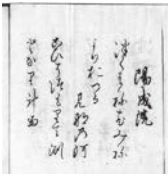 陽成院
つくはねのみね
よりおつる
見那乃河
こひそ徒もりて淵
となり計る